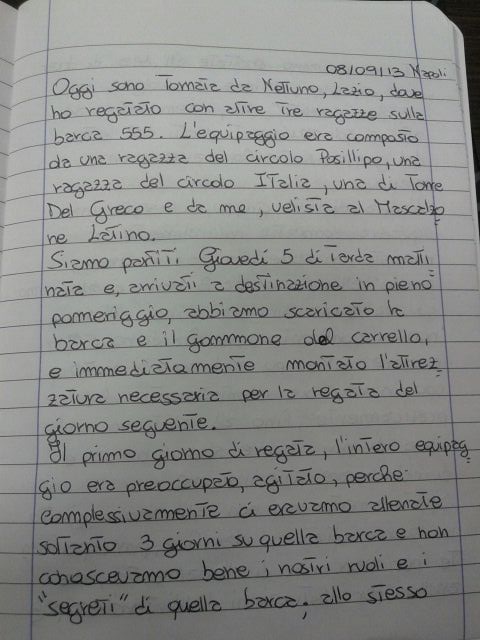 08/09/13 Napoli
Oggi sono tornata da Nettuno, Lazio, dove
ho regatato con altre tre ragazze sulla
barca 555. L'equipaggio era composto
da una ragazza del circolo Posillipo, una
ragazza del circolo Italia, una di Torre
Del Greco e da me, velista al Mascalzo
ne Latino.
Siamo partiti Giovedì 5 di tarda matti=
nata e, arrivati a destinazione in pieno
pomeriggio, abbiamo scaricato la
barca e il gommone dal carrello,
e immediatamente montato l'attrez=
zatura necessaria per la regata del
giorno seguente.
Il primo giorno di regata, l'intero equipag=
gio era preoccupato, agitato, perché
complessivamente ci eravamo allenate
soltanto 3 giorni su quella barca e non
conoscevamo bene i nostri ruoli e i
"segreti" di quella barca; allo stesso